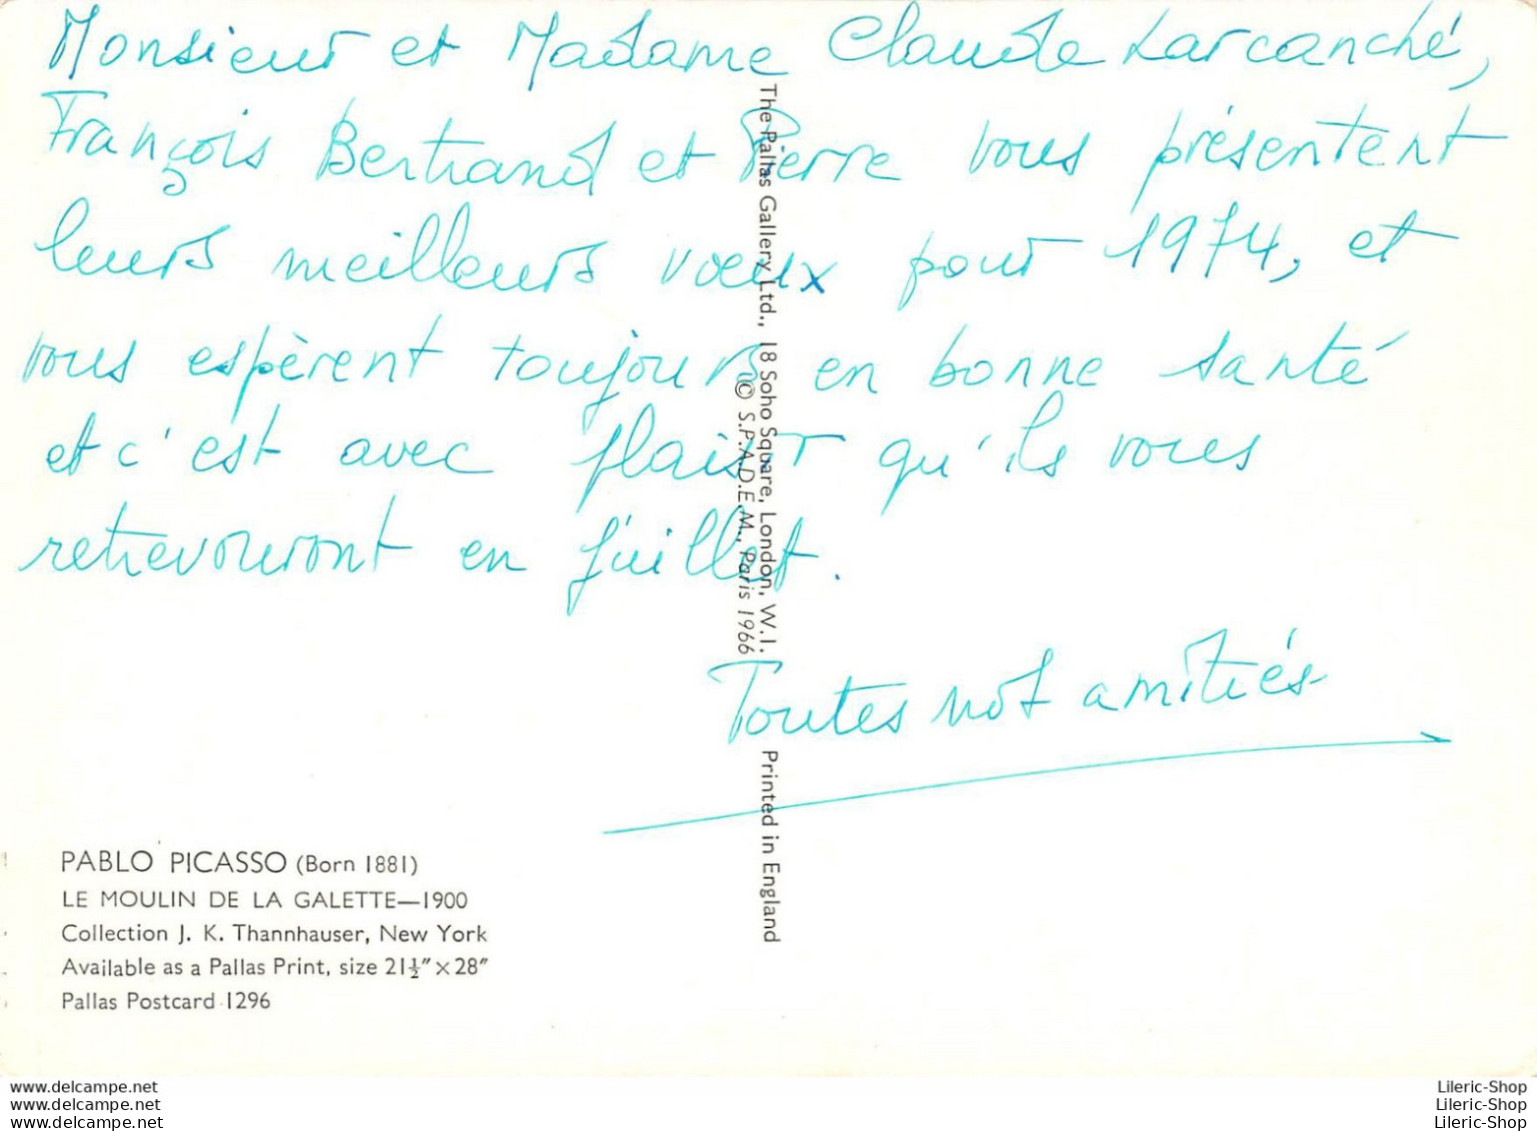 Monsieur et Madame Claude Larcanché,
François Bertrand et Pierre vous présentent
leurs meilleurs vœux pour 1974, et
vous espèrent toujours en bonne santé
et c'est avec plaisir qu'ils vous
retrevouront en juillet.
Toutes nos amitiés
The Pallas Gallery Ltd., 18 Soho Square, London, W.I.
© S.P.A.D.E.M., Paris 1966
Printed in England
PABLO PICASSO (Born 1881)
LE MOULIN DE LA GALETTE—1900
Collection J. K. Thannhauser, New York
Available as a Pallas Print, size 21½″ × 28″
Pallas Postcard 1296
www.delcampe.net
www.delcampe.net
www.delcampe.net
Lileric-Shop
Lileric-Shop
Lileric-Shop